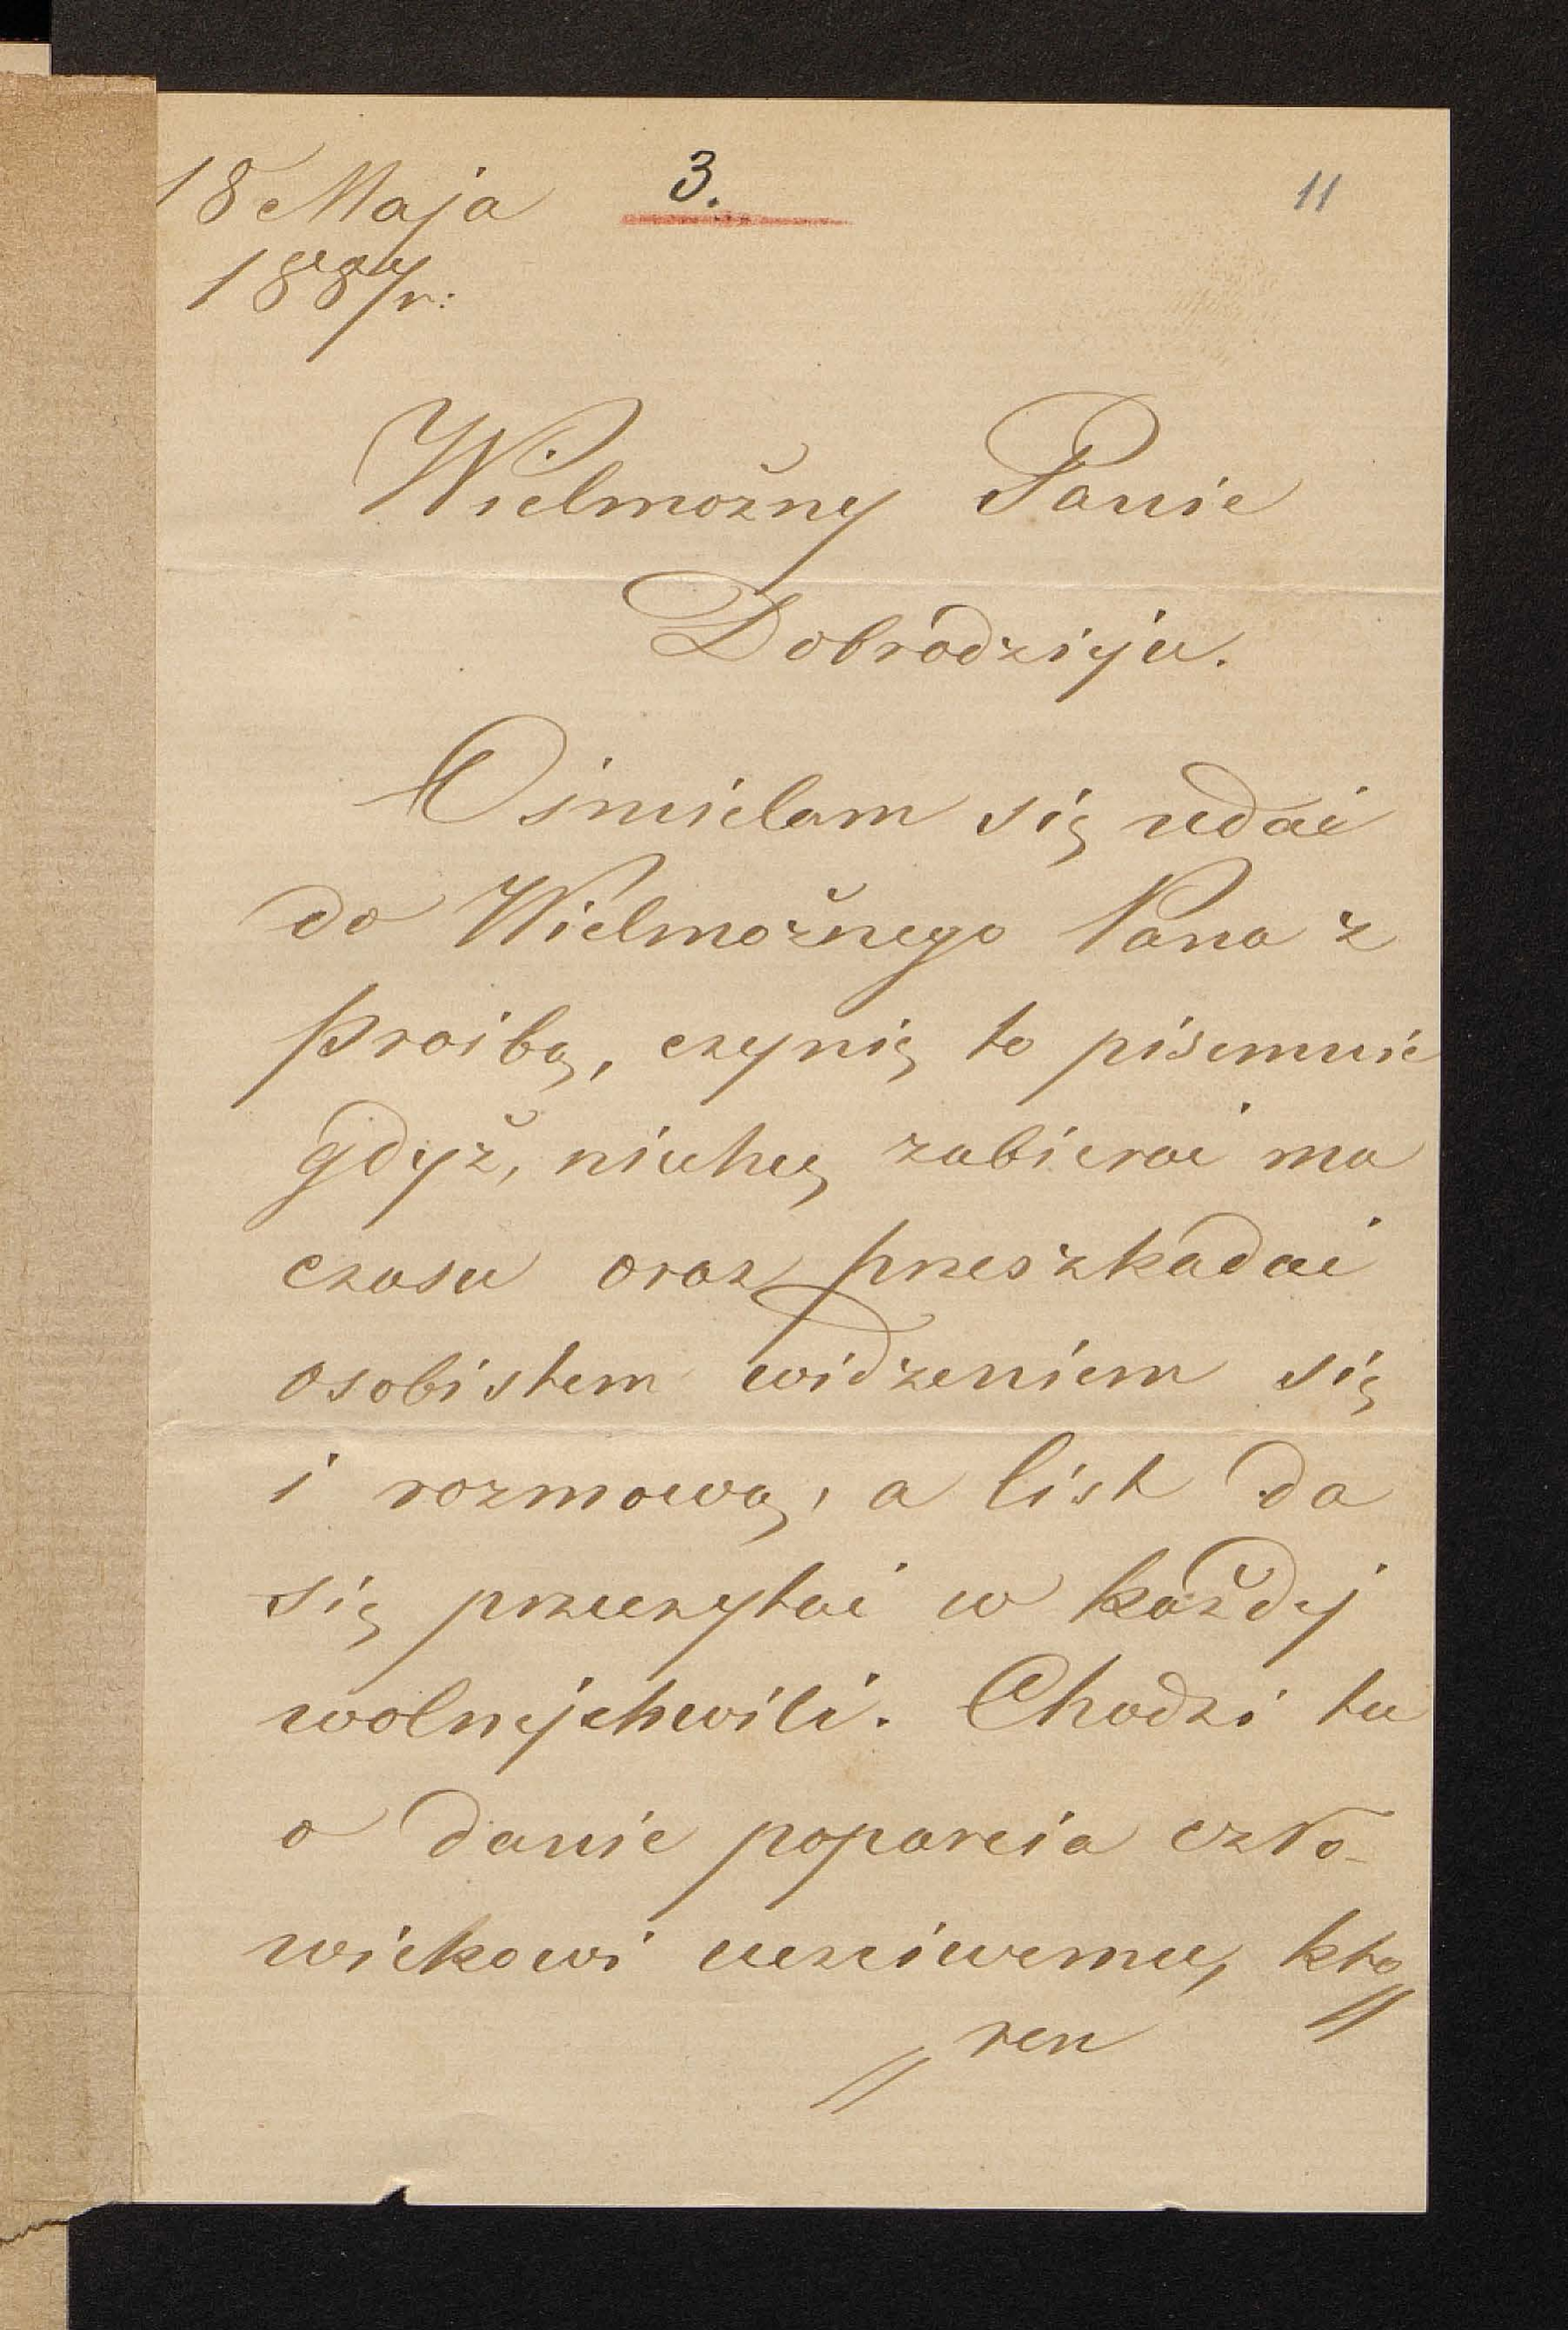 18 Maja 3. 11
1887r:
Wielmożny Panie
Dobrodzieju.
Ośmielam się udać
do Wielmożnego Pana z
prośbą, czynię to pisemnie
gdyż, niechcę zabierać ma
czasu oraz przeszkadać
osobistem widzeniem się
i rozmową, a list da
się przeczytać w każdej
wolnejchwili. Chodzi tu
o danie poparcia czło-
wiekowi uczciwemu, któ//
// ren